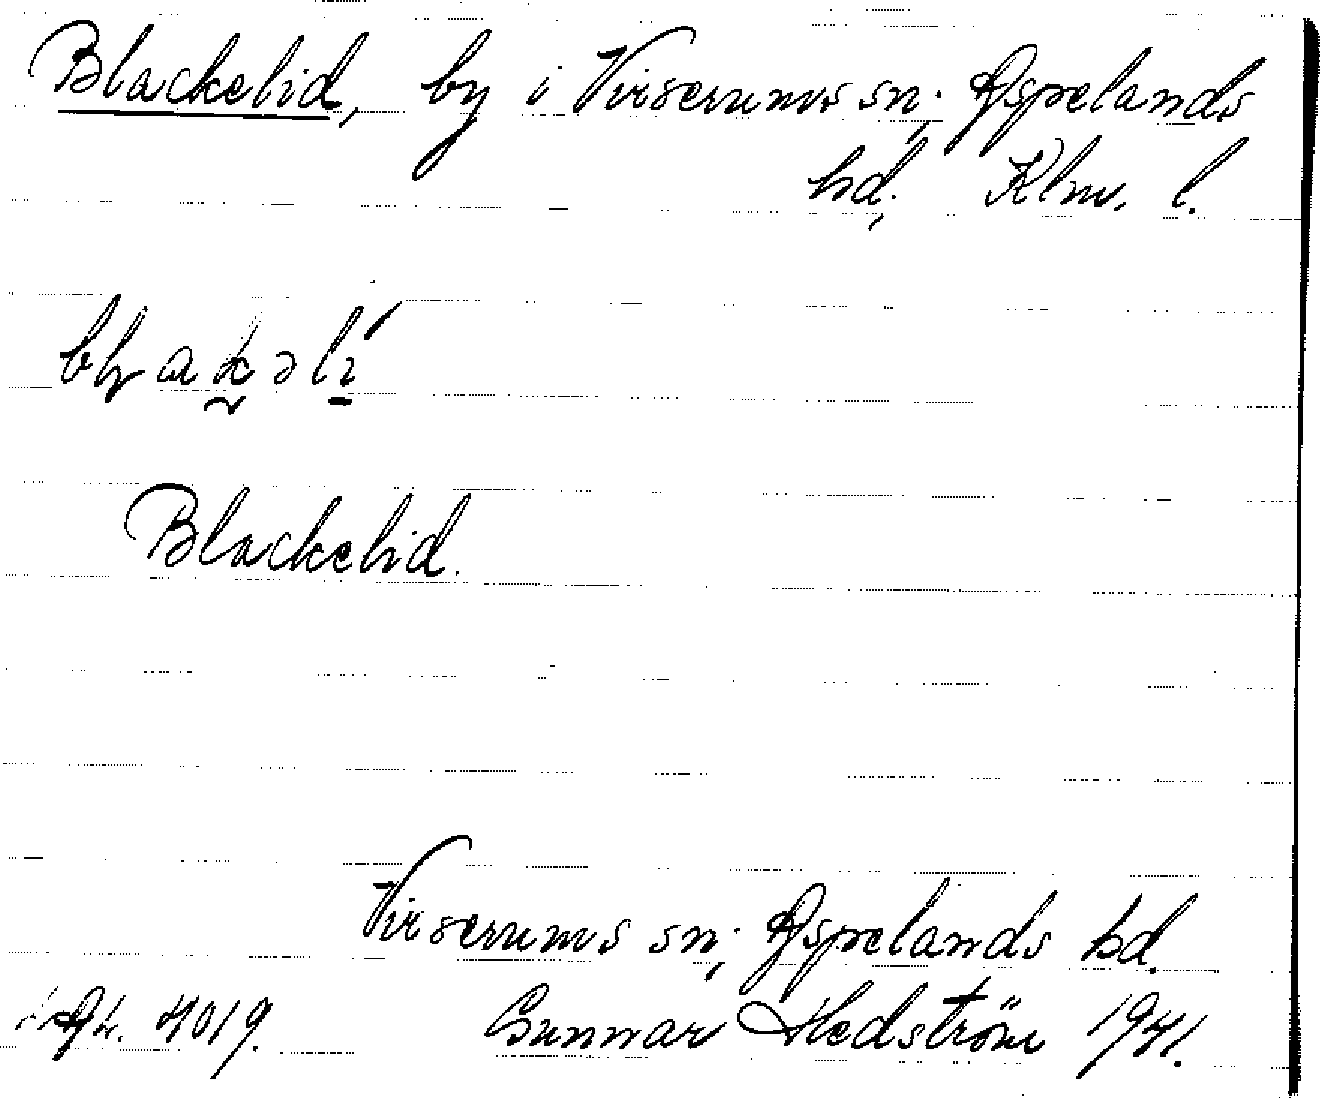 Blackelid, by i Virserums sn, Aspelands
hd, Klm. l.
Blackelid.
Virserums sn, Aspelands hd.
4019. Gunnar Hedström 1941.